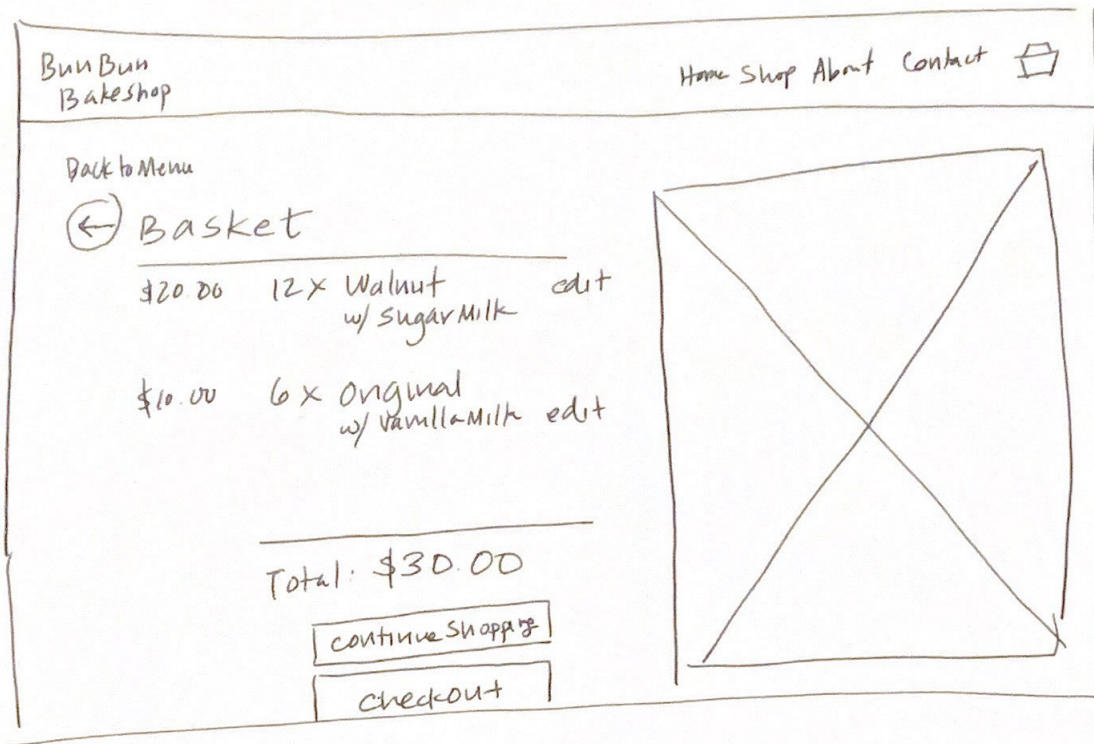 BunBun
Bakeshop
Home Shop About Contact
Back to Menu
Basket
$20.00 12x Walnut edit
w/ SugarMilk
$10.00 6x Original
w/ VanillaMilk edit
Total: $30.00
continue Shopping
checkout